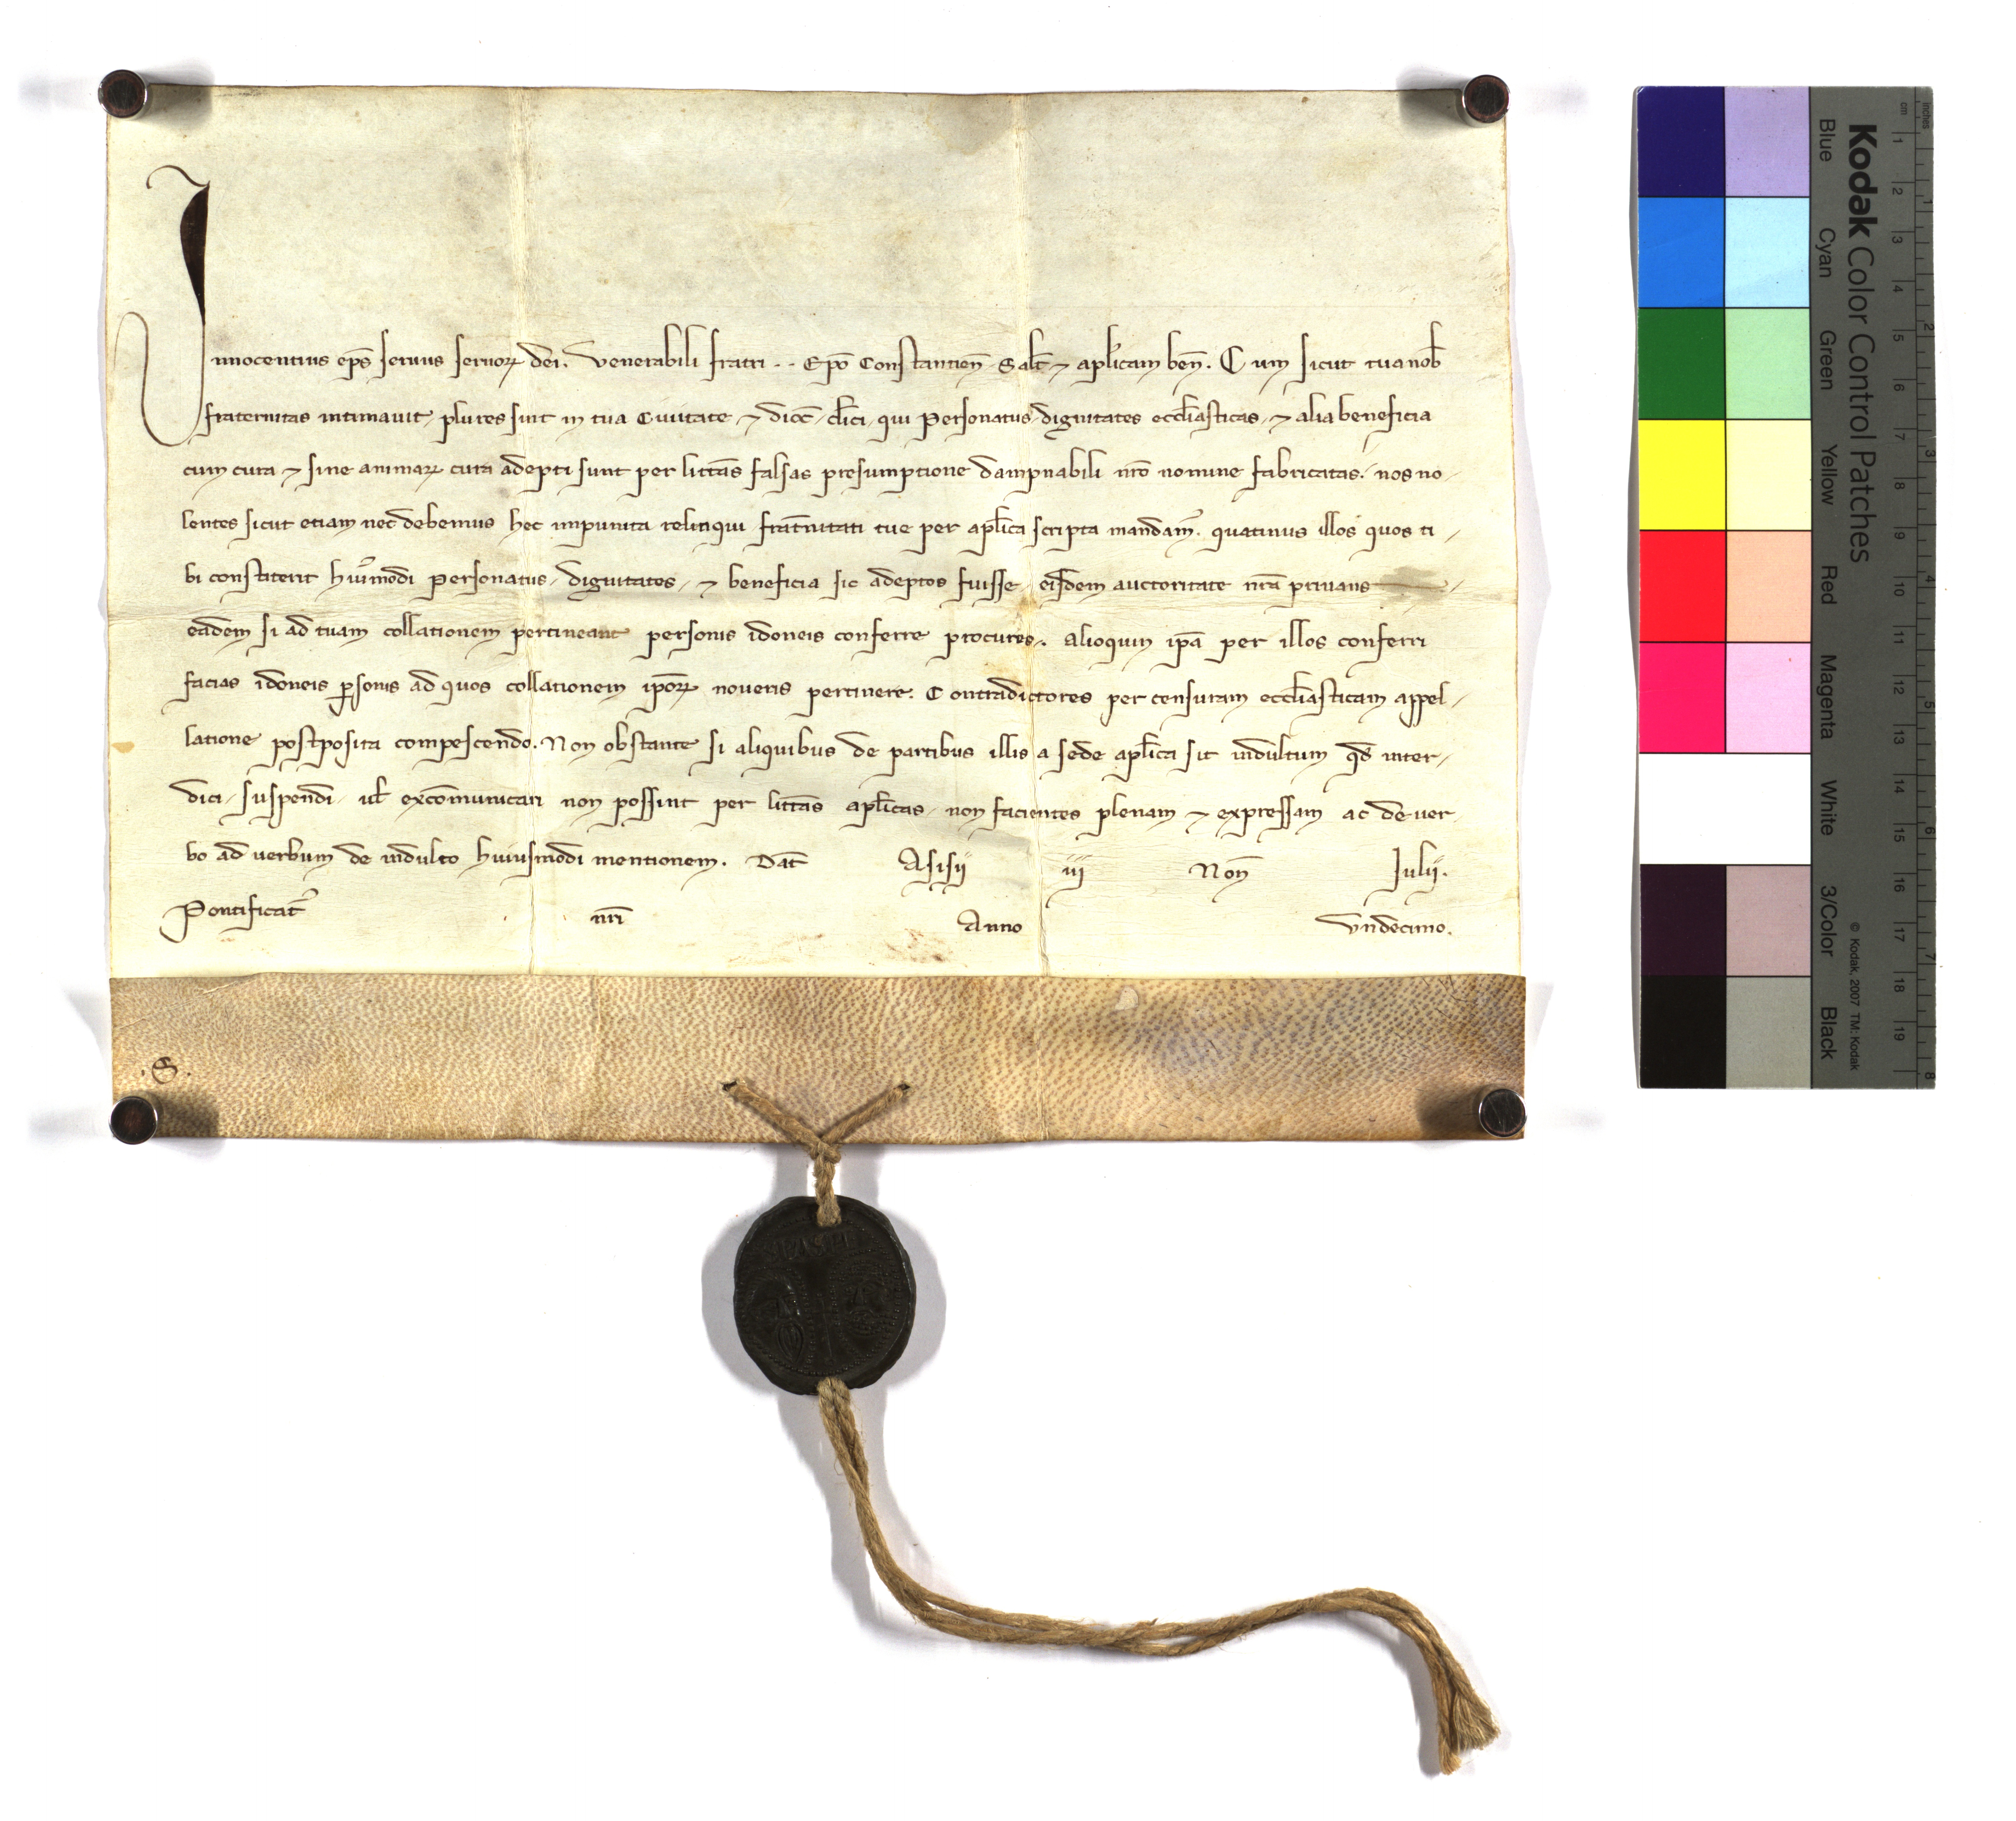 Innocentius ep̄s seruus seruoꝝ dei. Venerabili fratri . . Ep̄o Constantien̄ Sal̄t ⁊ ap̄licam ben̄. Cum sicut tua nob̄
fraternitas intimauit, plures sint in tua Ciuitate, ⁊ dioc̄ cl̄ici, qui Personatus, dignitates eccl̄iasticas, ⁊ alia beneficia
cum cura ⁊ sine animaꝝ cura adepti sunt per litt̄as falsas presumptione dampnabili nr̄o nomine fabricatas. nos no-
lentes sicut etiam nec debemus hec impunita relinqui frat̄nitati tue per ap̄lica scripta mandam᷒. quatinus illos quos ti-
bi constiterit hui᷒modi Personatus, dignitates, ⁊ beneficia sic adeptos fuisse, eisdem auctoritate nr̄a priuans
eadem si ad tuam collationem pertineant personis idoneis conferre procures. alioquin ip̄a per illos conferri
facias idoneis ꝑsonis ad quos collationem ip̄oꝝ noueris pertinere. Contradictores per censuram eccl̄iasticam appel-
latione postposita compescendo. Non obstante si aliquibus de partibus illis a sede ap̄lica sit indultum qd̄ inter-
dici, suspendi, ul̄ excōmunicari non possint per litt̄as ap̄licas, non facientes plenam ⁊ expressam ac de uer-
bo ad uerbum de indulto huiusmodi mentionem. Dat̄ Asisii iii Non̄ Iulii.
Pontificat᷒ nr̄i Anno Vndecimo.
.S.
SPASPE
Kodak Color Control Patches
Blue Cyan Green Yellow Red Magenta White 3/Color Black
© Kodak, 2007 TM: Kodak
inches 1 2 3 4 5 6 7 8
cm 1 2 3 4 5 6 7 8 9 10 11 12 13 14 15 16 17 18 19